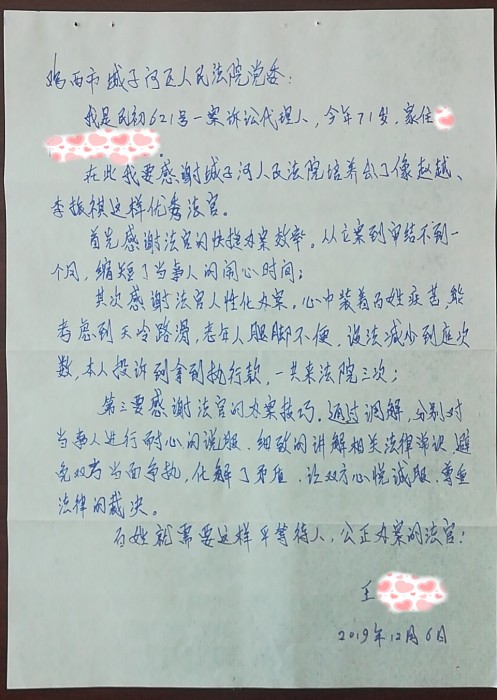 鸡西市城子河区人民法院党委：
我是民初621号一案诉讼代理人，今年71岁，家住
在此我要感谢城子河人民法院培养出了像赵越、
李振祺这样优秀法官。
首先感谢法官的快捷办案效率。从立案到审结不到一
个月，缩短了当事人的闹心时间；
其次感谢法官人性化办案。心中装着百姓疾苦，能
考虑到天冷路滑，老年人腿脚不便，设法减少到庭次
数，本人投诉到拿到执行款，一共来法院三次；
第三要感谢法官的办案技巧。通过调解，分别对
当事人进行耐心的说服、细致的讲解相关法律常识，避
免双方当面争执，化解了矛盾，让双方心悦诚服、尊重
法律的裁决。
百姓就需要这样平等待人，公正办案的法官！
王
2019年12月6日